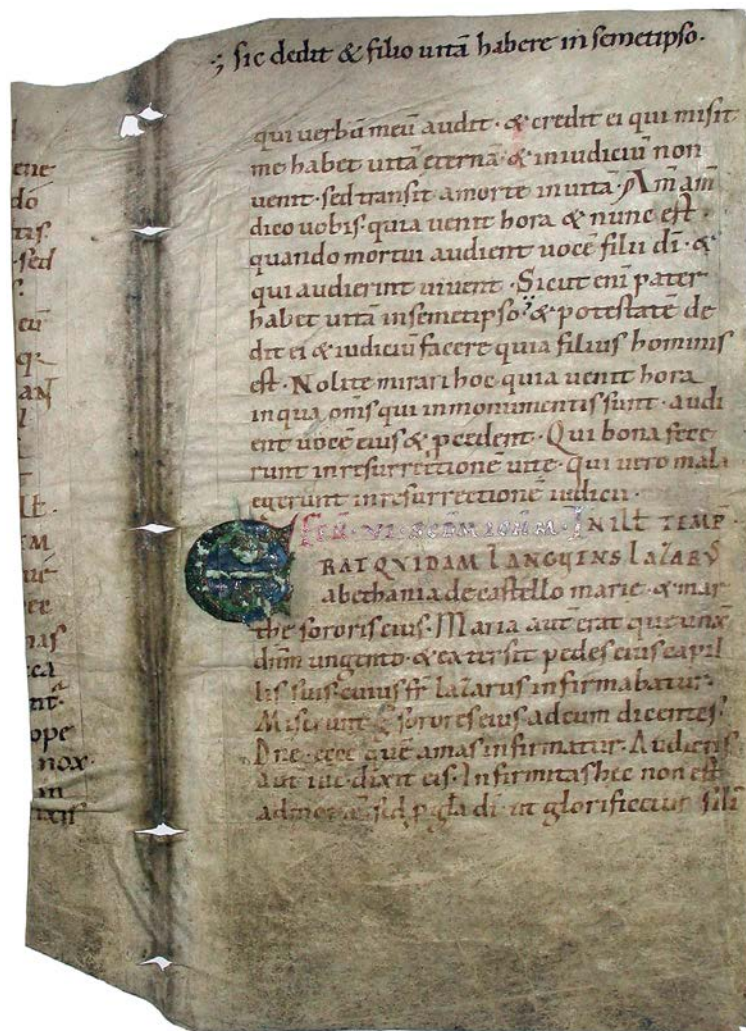 sic dedit & filio uitā habere in semetipso·
qui uerbū meū audit· & credit ei qui misit
me habet uitā eternā & in iudiciū non
uenit· sed transit a morte in uitā· Am̄ am̄
dico uobis· quia uenit hora & nunc est·
quando mortui audient uocē filii dī· &
qui audierint uiuent· Sicut enī pater
habet uitā in semetipso· & potestatē de
dit ei & iudiciū facere quia filius hominis
est· Nolite mirari hoc quia uenit hora
in qua om̄s qui in monumentis sunt· audi
ent uocē eius & ꝓcedent· Qui bona fece
runt in resurrectionē uite· qui uero mala
egerunt in resurrectionē iudicii·
IN ILƚ TEMP̄
ERAT QVIDAM LANGUENS LAZARVS
a bethania de castello marie· & mar
the sororis eius· Maria aut̄ erat que unx̄
dn̄m ungento· & extersit pedes eius capil
lis suis· cuius fr̄ lazarus infirmabatur·
Miserunt ḡ sorores eius ad eum dicentes·
Dn̄e· ecce quē amas infirmatur· Audiens
aut̄ ihc· dixit eis· Infirmitas hec non est
ad mortē· sed ꝓ gl̄a dī· ut glorificetur fili
ene
do
tis·
·sed
eū
q·
AN
l
Lƚ·
EM
ope
nox·
in